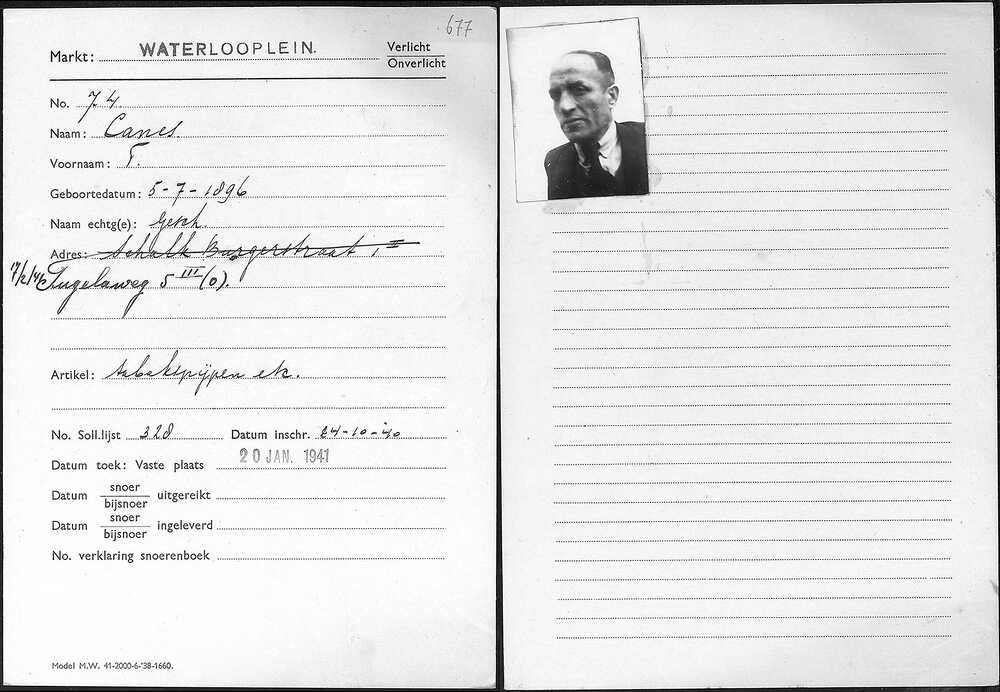 677
Markt: WATERLOOPLEIN. Verlicht
Onverlicht
No. 74
Naam: Canes.
Voornaam: T.
Geboortedatum: 5-7-1896
Naam echtg(e): Gesch.
Adres: Schalk Burgerstraat 1 II
7/2/42 Tugelaweg 5 III (o).
Artikel: tabakspijpen etc.
No. Soll.lijst 328 Datum inschr. 24-10-'40
Datum toek: Vaste plaats 20 JAN. 1941
Datum snoer/bijsnoer uitgereikt
Datum snoer/bijsnoer ingeleverd
No. verklaring snoerenboek
Model M.W. 41-2000-6-'38-1660.